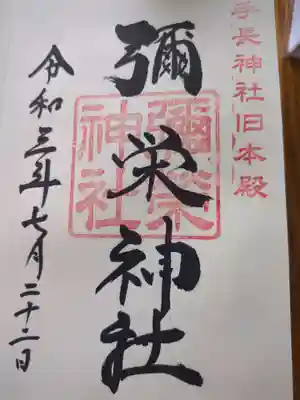 手長神社旧本殿
彌栄神社
彌榮神社
令和三年七月二十二日